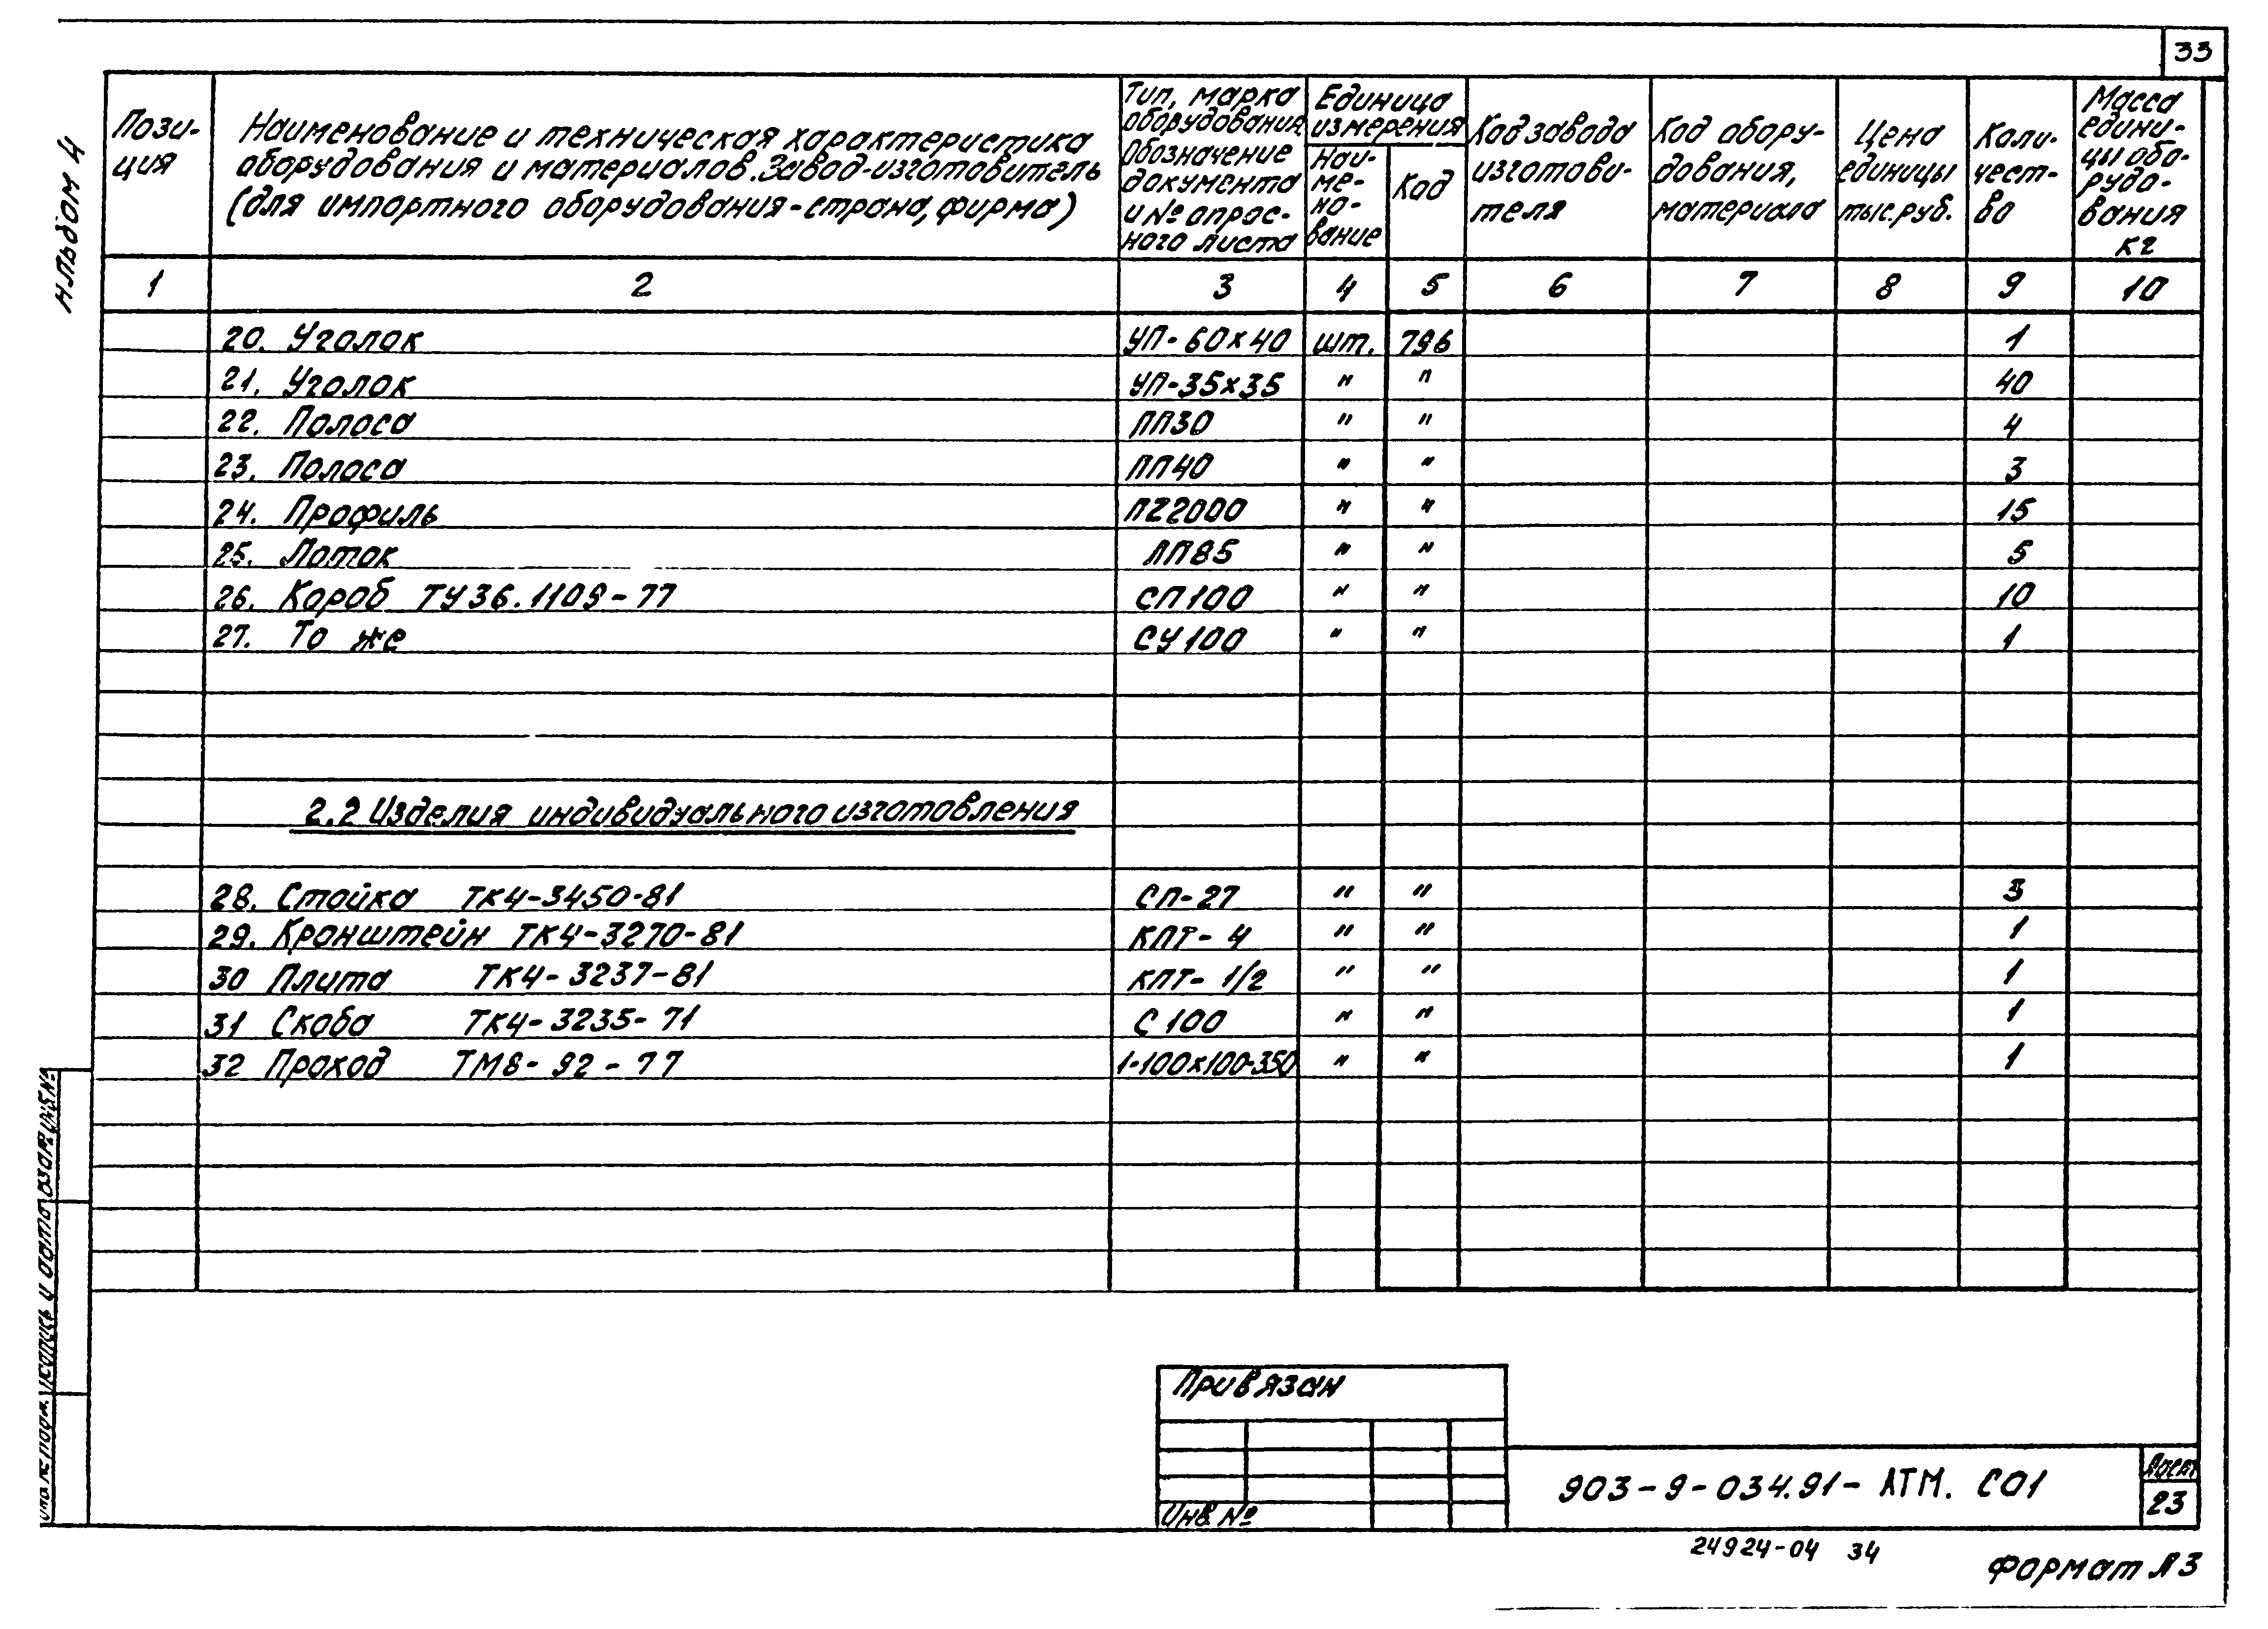 33
Альбом 4
Пози-
ция
Наименование и техническая характеристика
оборудования и материалов. Завод-изготовитель
(для импортного оборудования-страна, фирма)
Тип, марка
оборудования,
Обозначение
документа
и № опрос-
ного листа
Единица
измерения
Наи-
ме-
но-
вание
Код
Код завода
изготови-
теля
Код обору-
дования,
материала
Цена
единицы
тыс.руб.
Коли-
чест-
во
Масса
едини-
цы обо-
рудо-
вания
кг
1 2 3 4 5 6 7 8 9 10
20. Уголок УП-60х40 шт. 796 1
21. Уголок УП-35х35 " " 40
22. Полоса ПП30 " " 4
23. Полоса ПП40 " " 3
24. Профиль ПZ2000 " " 15
25. Лоток ЛП85 " " 5
26. Короб ТУ36.1109-77 СП100 " " 10
27. То же СУ100 " " 1
2.2 Изделия индивидуального изготовления
28. Стойка ТК4-3450-81 СП-27 " " 3
29. Кронштейн ТК4-3270-81 КПТ-4 " " 1
30 Плита ТК4-3237-81 КПТ-1/2 " " 1
31 Скоба ТК4-3235-71 С100 " " 1
32 Проход ТМ8-92-77 1-100х100-350 " " 1
Взам. инв.№
Подпись и дата
Инв.№ подл.
Привязан
Инв.№
903-9-034.91-АТМ. СО1
Лист
23
24924-04 34
Формат А3